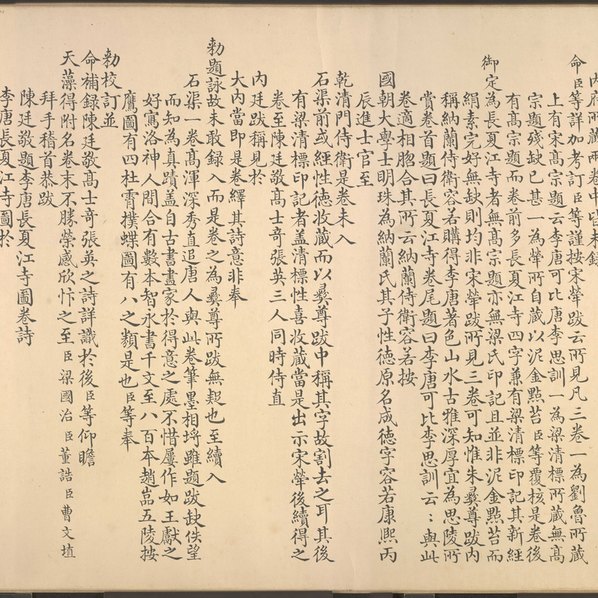 內府所藏兩卷中皆未錄
命臣等詳加考訂臣等謹按宋犖跋云所見凡三卷一為劉魯所藏
上有宋高宗題云李唐可比唐李思訓一為梁清標所藏無高
宗題殘缺已甚一為犖所自藏以泥金點苔臣等覆核是卷後
有高宗題而卷前多長夏江寺四字兼有梁清標印記其新經
御定為長夏江寺者無高宗題亦無梁氏印記且並非泥金點苔而
絹素完好無缺則均非宋犖跋所見三卷可知惟朱彝尊跋內
稱納蘭侍衛容若購得李唐著色山水古雅深厚宜為思陵所
賞卷首題曰長夏江寺卷尾題曰李唐可比李思訓云云與此
卷適相脗合其所云納蘭侍衛容若按
國朝大學士明珠為納蘭氏其子性德原名成德字容若康熙丙
辰進士官至
乾清門侍衛是卷未入
石渠前或經性德收藏而以彝尊跋中稱其字故割去之耳其後
有梁清標印記者蓋清標性喜收藏當是出示宋犖後續得之
卷至陳廷敬高士奇張英三人同時侍直
內廷跋稱見於
大內當即是卷繹其詩意非奉
勅題詠故未敢錄入而是卷之為彝尊所跋無耜也至續入
石渠一卷高渾深秀直追唐人與此卷筆墨相埒雖題跋缺佚望
而知為真蹟蓋自古書畫家於得意之處不惜屢作如王獻之
好寫洛神人間合有數本智永書千文至八百本趙嵓五陵按
鷹圖有四杜霄撲蝶圖有八之類是也臣等奉
勅校訂並
命補錄陳廷敬高士奇張英之詩詳識於後臣等仰瞻
天藻得附名卷末不勝榮感欣忭之至臣梁國治臣董誥臣曹文埴
拜手稽首恭跋
陳廷敬題李唐長夏江寺圖卷詩
李唐長夏江寺圖於